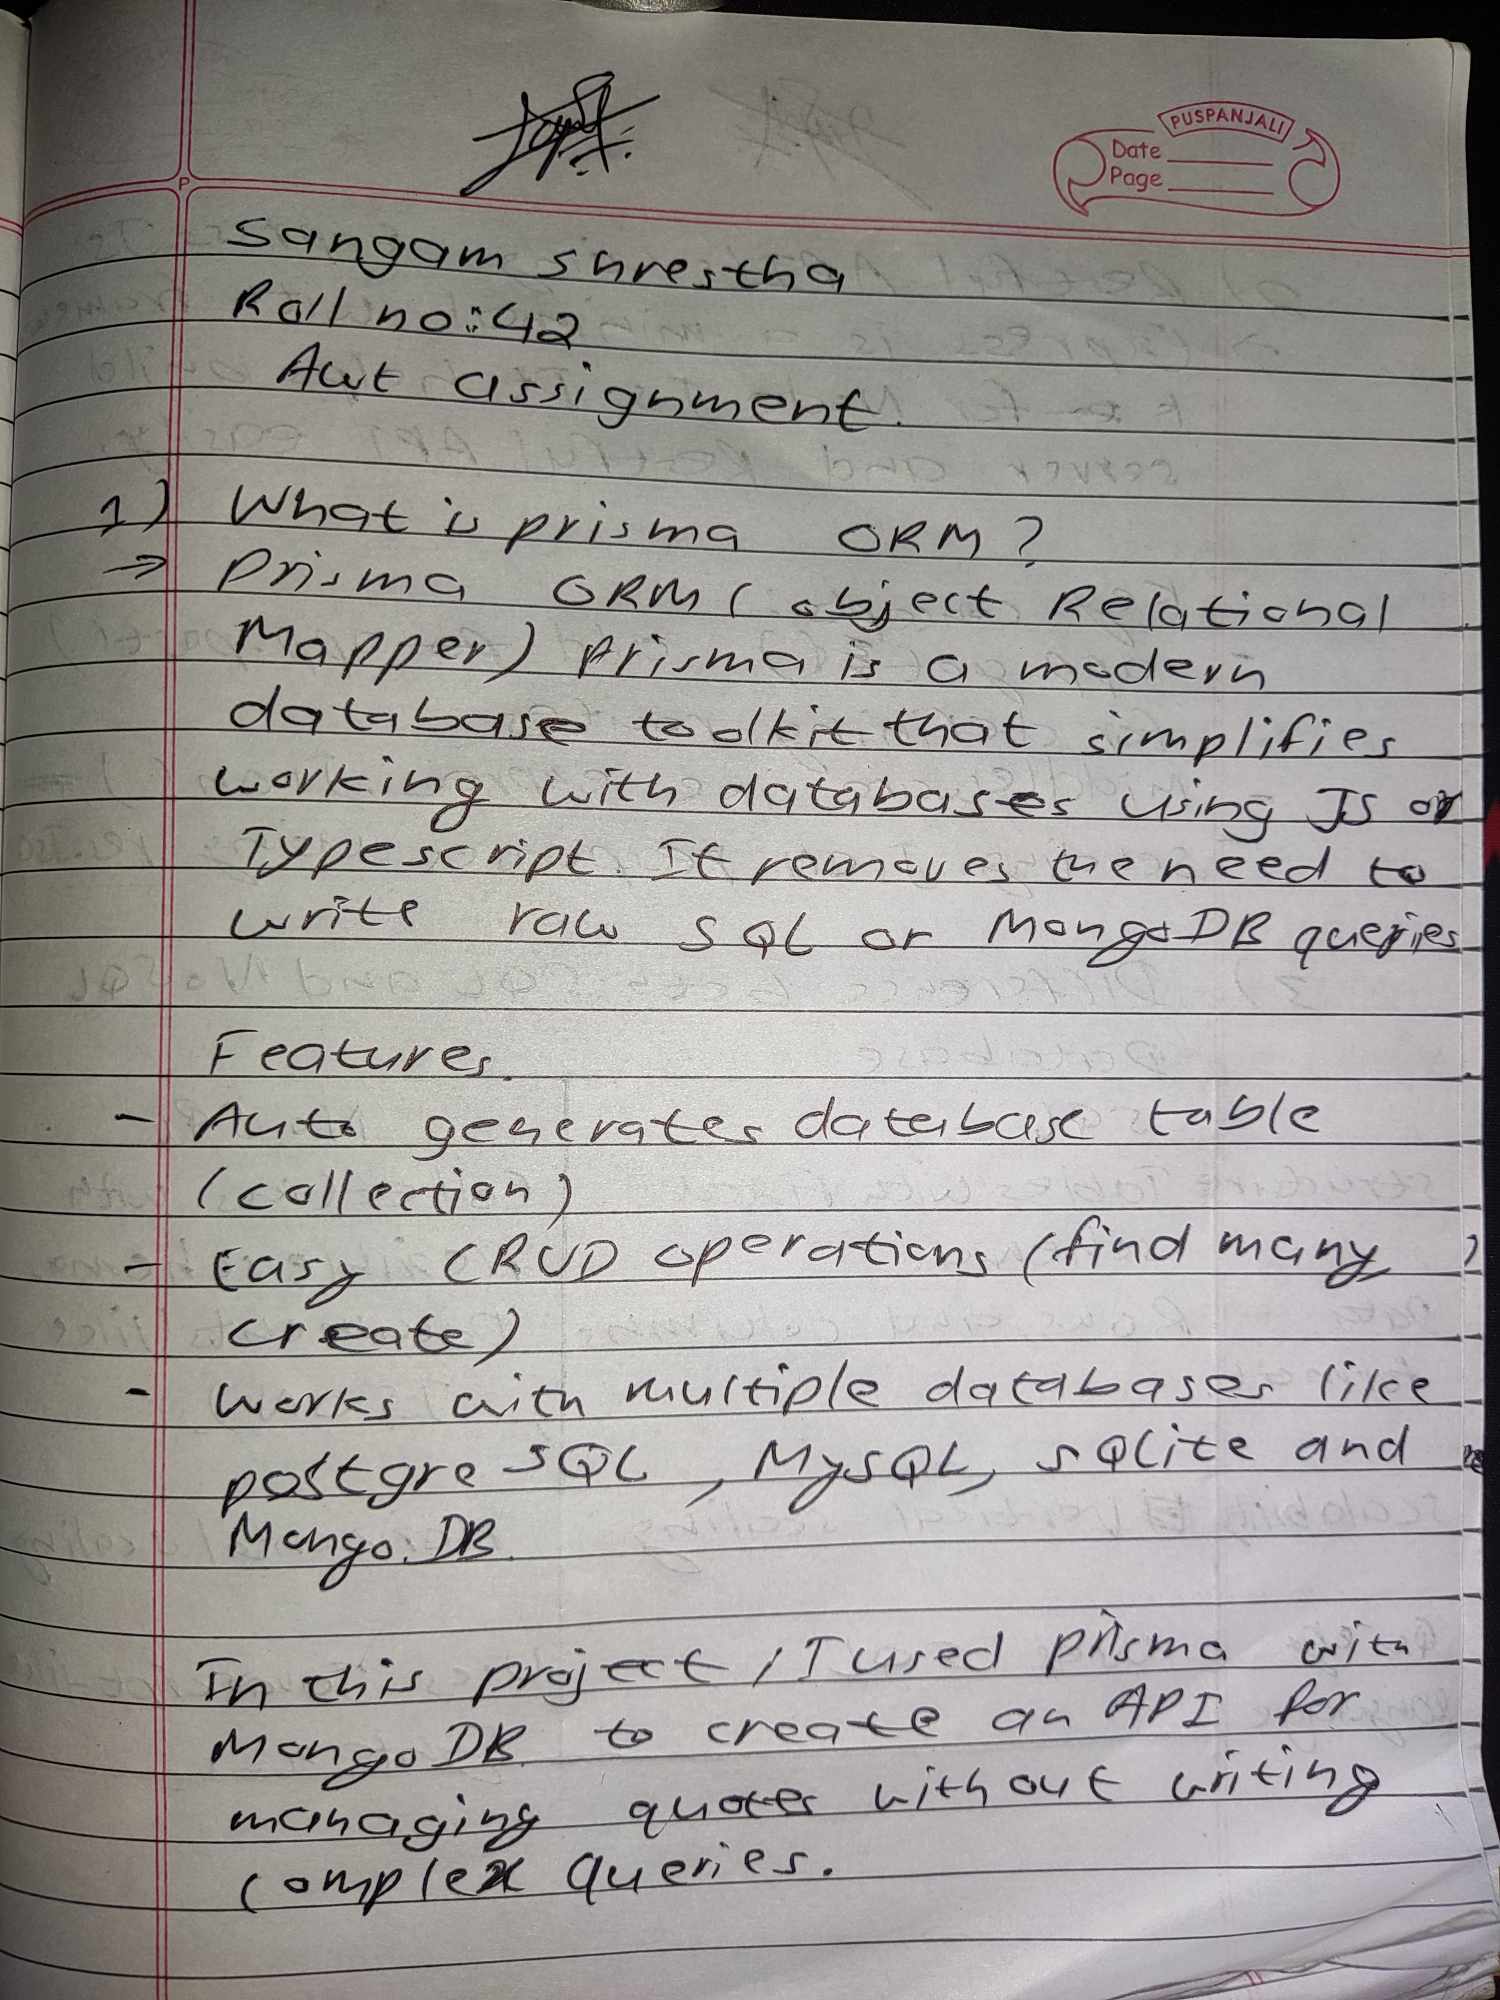 PUSPANJALI
Date
Page
P
Sangam Shrestha
Roll no:42
Awt assignment.
1) What is prisma ORM?
→ Prisma ORM (object Relational
Mapper) prisma is a modern
database toolkit that simplifies
working with databases using JS or
Typescript. It removes the need to
write raw SQL or MongoDB queries
Features.
- Auto generates database table
(collection)
- Easy CRUD operations (find many,
create)
- works with multiple databases like
postgre SQL, MySQL, SQLite and
Mongo.DB.
In this project, I used prisma with
MongoDB to create an API for
managing quotes without writing
complex queries.